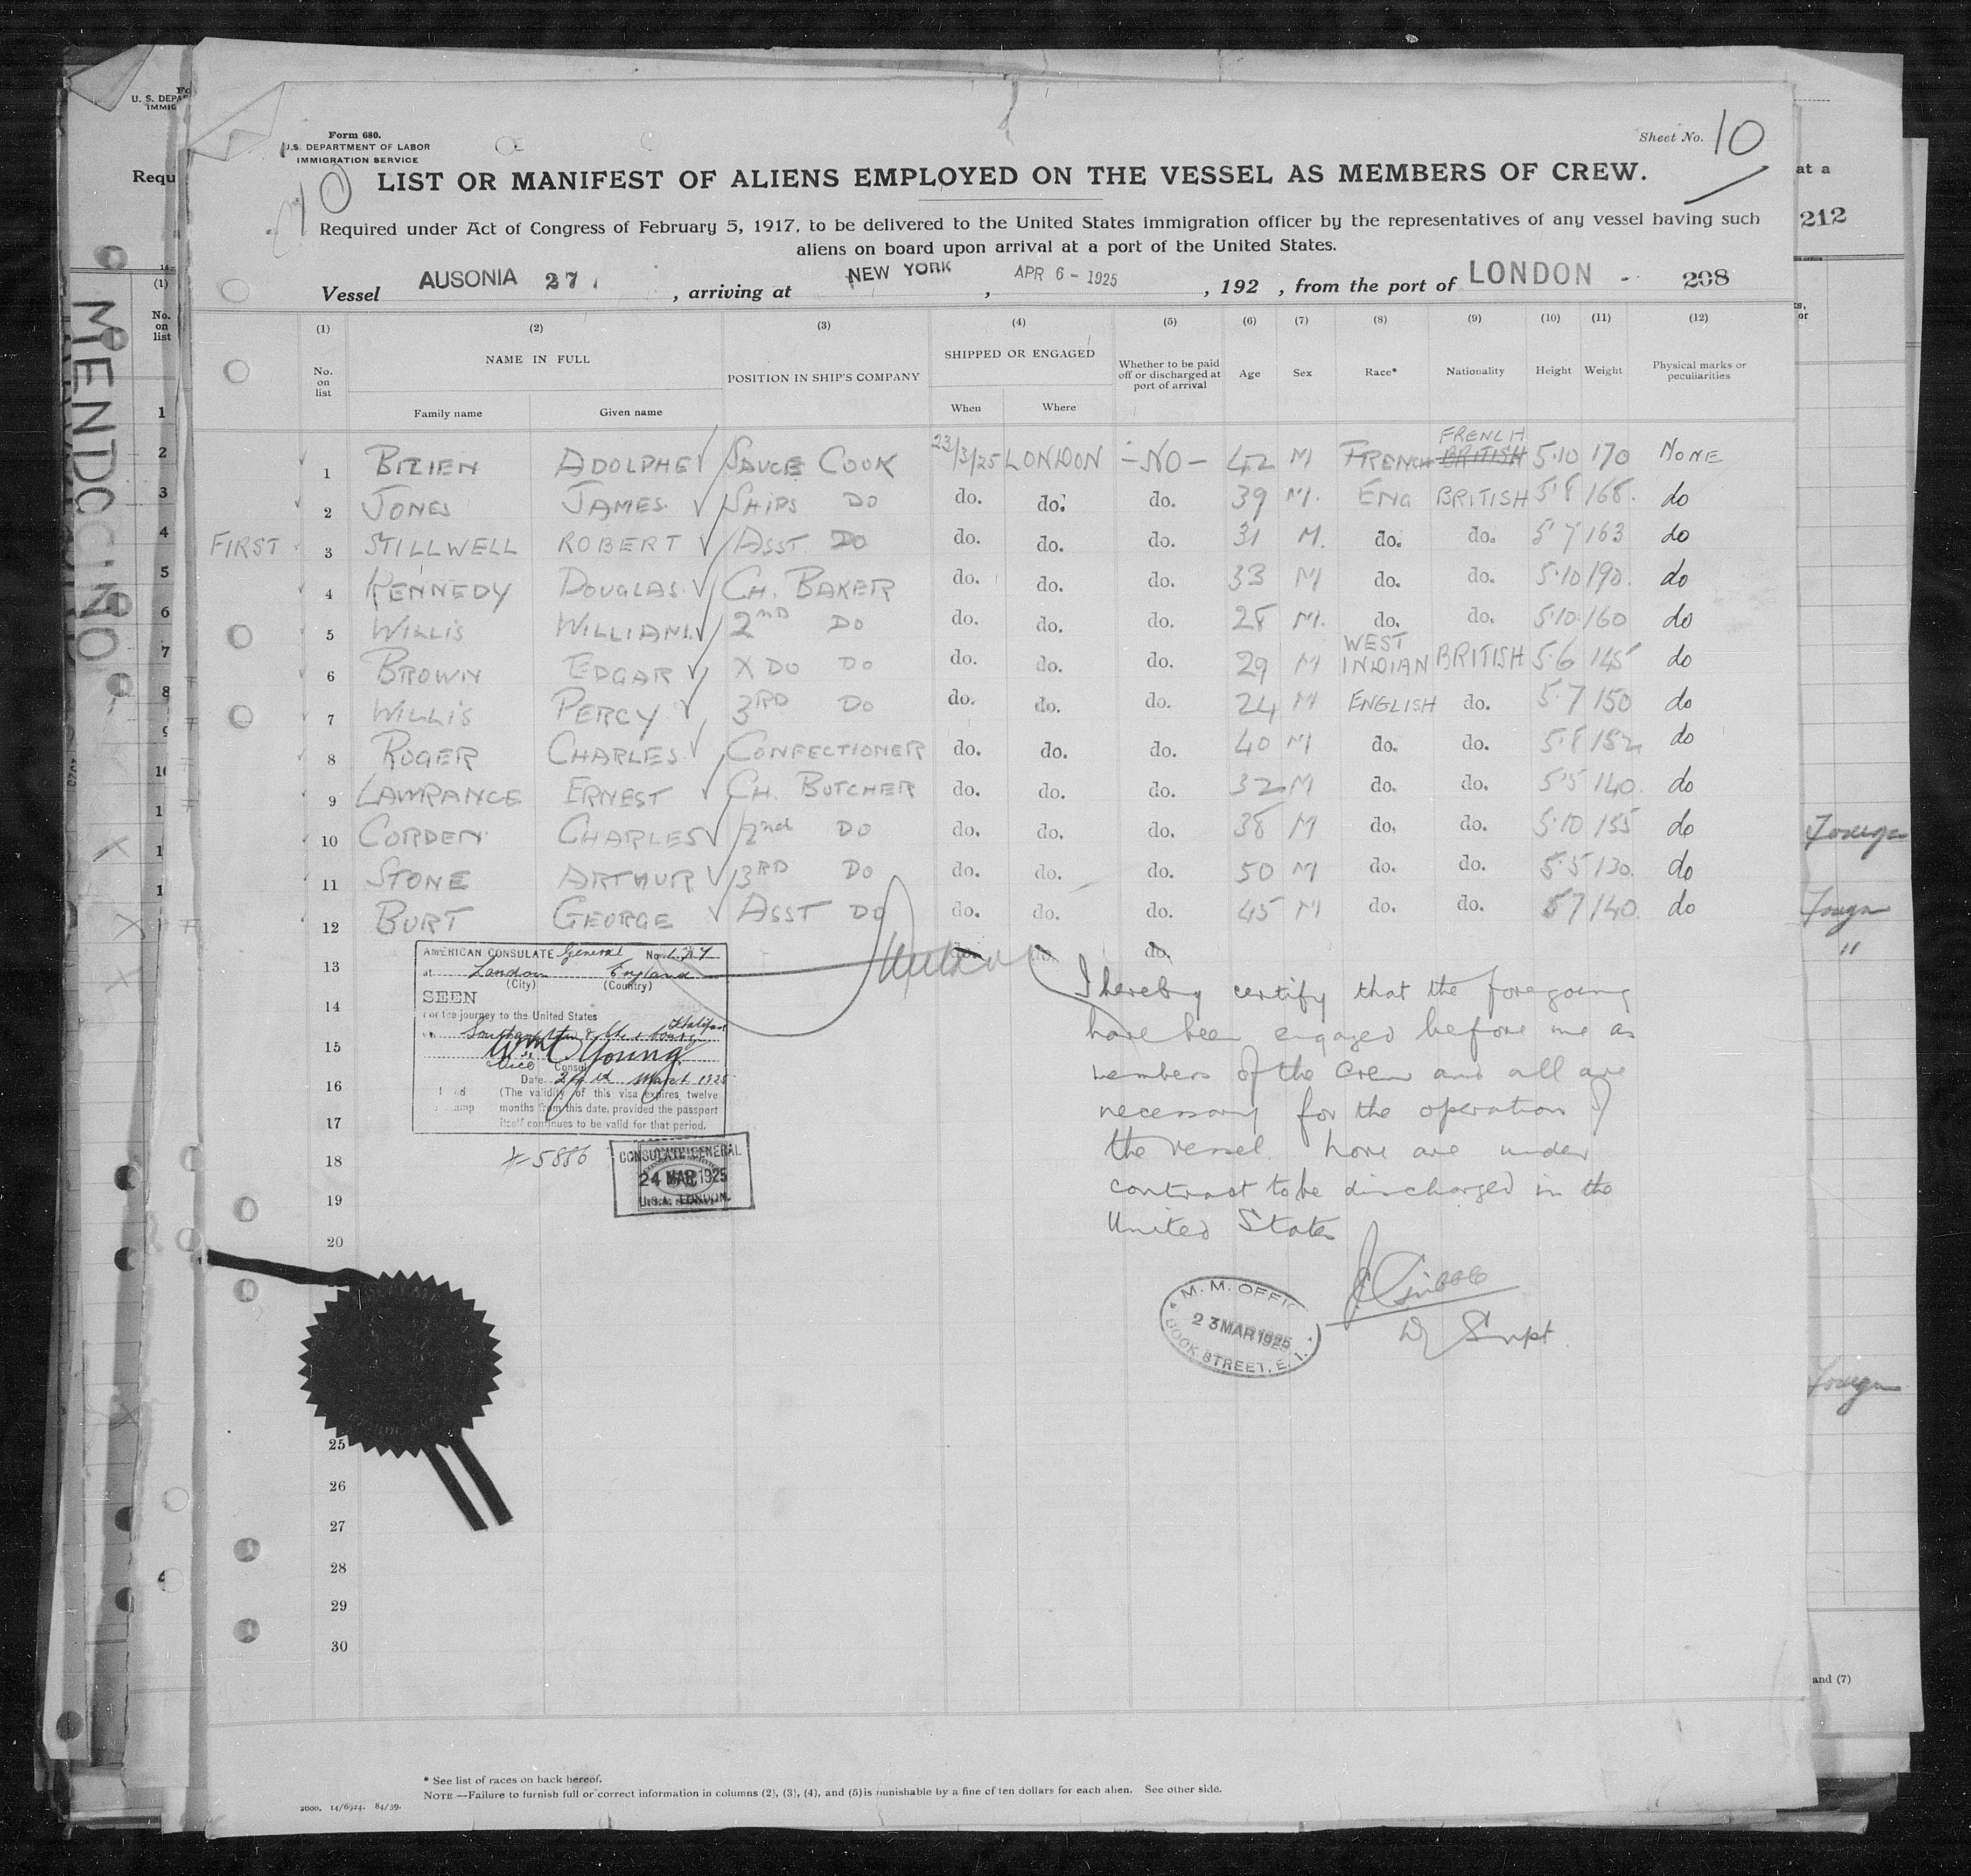 Form 680.
U.S. DEPARTMENT OF LABOR
IMMIGRATION SERVICE
Sheet No. 10
10
LIST OR MANIFEST OF ALIENS EMPLOYED ON THE VESSEL AS MEMBERS OF CREW.
Required under Act of Congress of February 5, 1917, to be delivered to the United States immigration officer by the representatives of any vessel having such
aliens on board upon arrival at a port of the United States.
Vessel AUSONIA 27, arriving at NEW YORK, APR 6 - 1925, 192 , from the port of LONDON - 208
(1) (2) (3) (4) (5) (6) (7) (8) (9) (10) (11) (12)
No. on list NAME IN FULL POSITION IN SHIP'S COMPANY SHIPPED OR ENGAGED Whether to be paid off or discharged at port of arrival Age Sex Race* Nationality Height Weight Physical marks or peculiarities
Family name Given name When Where
FRENCH
1 BIZIEN ADOLPHE SAUCE COOK 23/3/25 LONDON - NO - 42 M FRENCH BRITISH 5.10 170 NONE
2 JONES JAMES SHIPS DO do. do. do. 39 M. ENG BRITISH 5.8 168. do
FIRST 3 STILLWELL ROBERT ASST DO do. do. do. 31 M. do. do. 5 7 163 do
4 KENNEDY DOUGLAS CH. BAKER do. do. do. 33 M do. do. 5.10 190. do
5 WILLIS WILLIAM 2ND DO do. do. do. 28 M. do. do. 5.10 160 do
6 BROWN EDGAR X DO DO do. do. do. 29 M WEST INDIAN BRITISH 5.6 145 do
7 WILLIS PERCY 3RD DO do. do. do. 24 M ENGLISH do. 5.7 150 do
8 ROGER CHARLES CONFECTIONER do. do. do. 40 M do. do. 5.8 152 do
9 LAWRANCE ERNEST CH. BUTCHER do. do. do. 32 M do. do. 5.5 140. do
10 CORDEN CHARLES 2nd DO do. do. do. 38 M do. do. 5.10 155 do
11 STONE ARTHUR 3RD DO do. do. do. 50 M do. do. 5.5 130. do
12 BURT GEORGE ASST DO do. do. do. 45 M do. do. 5 7 140. do
13 do. do. do.
14
15
16
17
18
19
20
25
26
27
28
29
30
AMERICAN CONSULATE General No.
at London England
(City) (Country)
SEEN
For the journey to the United States
Southampton & Halifax
Wm C Young
Vice Consul
Date 24th March 1925
(The validity of this visa expires twelve
months from this date, provided the passport
itself continues to be valid for that period.
# 5886
CONSULATE GENERAL
24 MAR 1925
U.S.A. LONDON.
I hereby certify that the foregoing
have been engaged before me as
members of the crew and all are
necessary for the operation of
the vessel. None are under
contract to be discharged in the
United States
Dy Supt.
M. M. OFFICE
23 MAR 1925
DOCK STREET, E. 1.
* See list of races on back hereof.
NOTE.—Failure to furnish full or correct information in columns (2), (3), (4), and (5) is punishable by a fine of ten dollars for each alien. See other side.
2000. 14/6924. 84/39.
U. S. DEPAR
IMMIG
Requ
(1)
No.
on
list
MENDOCINO
at a
212
Foreign
Foreign
"
Foreign
and (7)